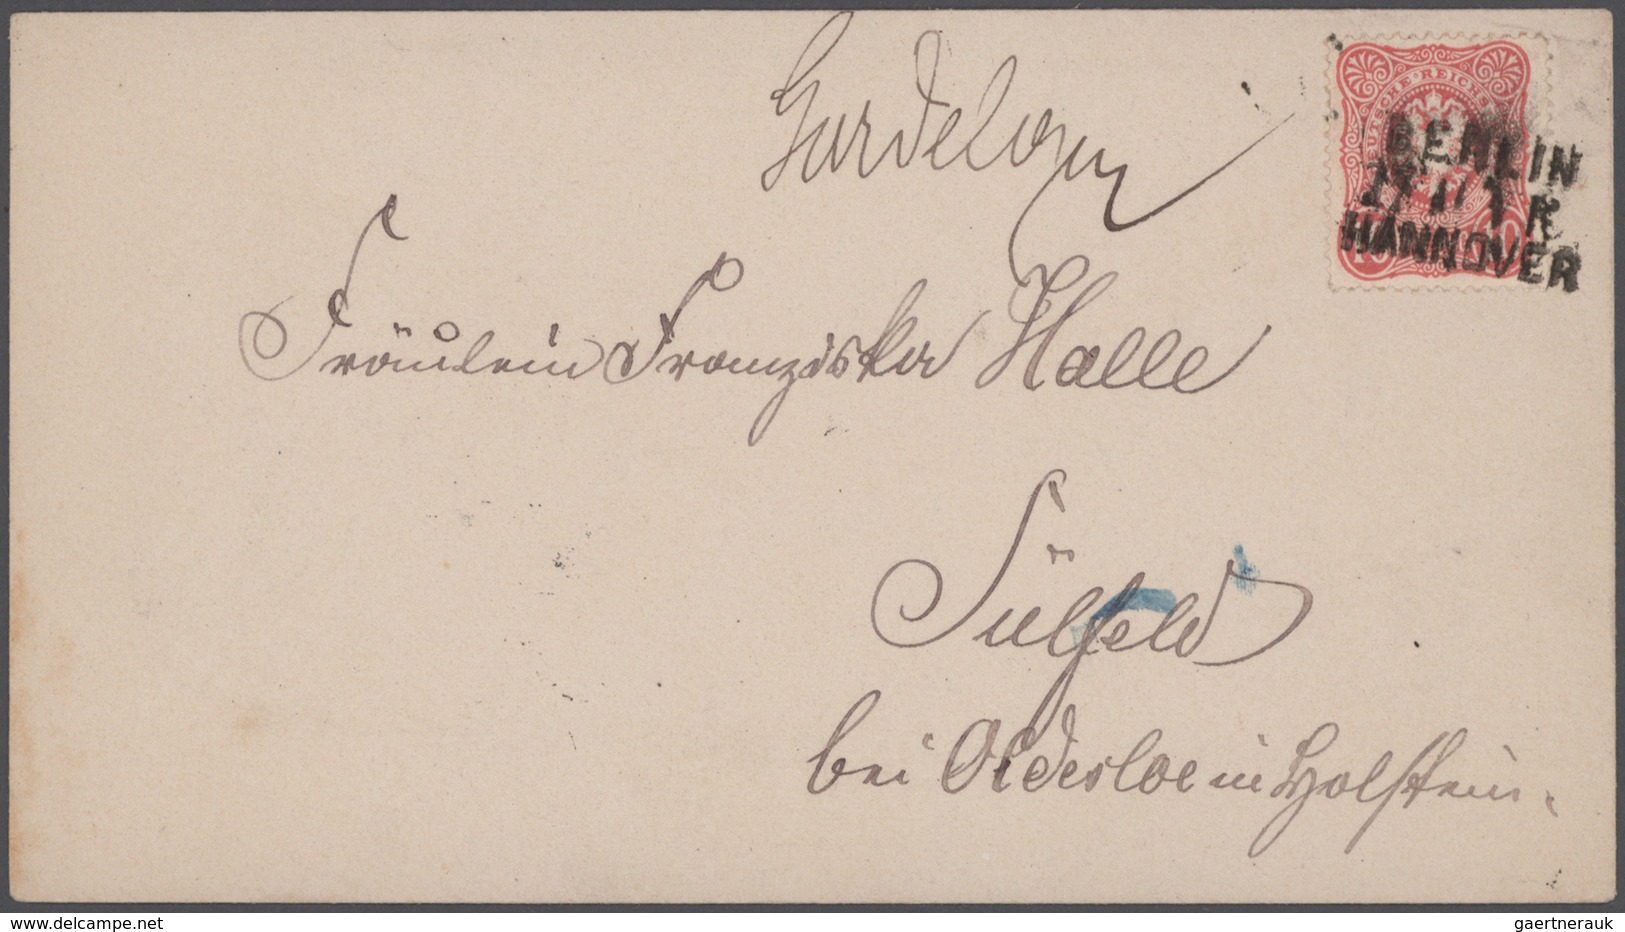 Gardelegen
DEUTSCHE REICHS
BERLIN
HANNOVER
10
Fräulein Franziska Halle
Sülfeld
bei Oldesloe in Holstein.
www.delcampe.net
gaertnerauk